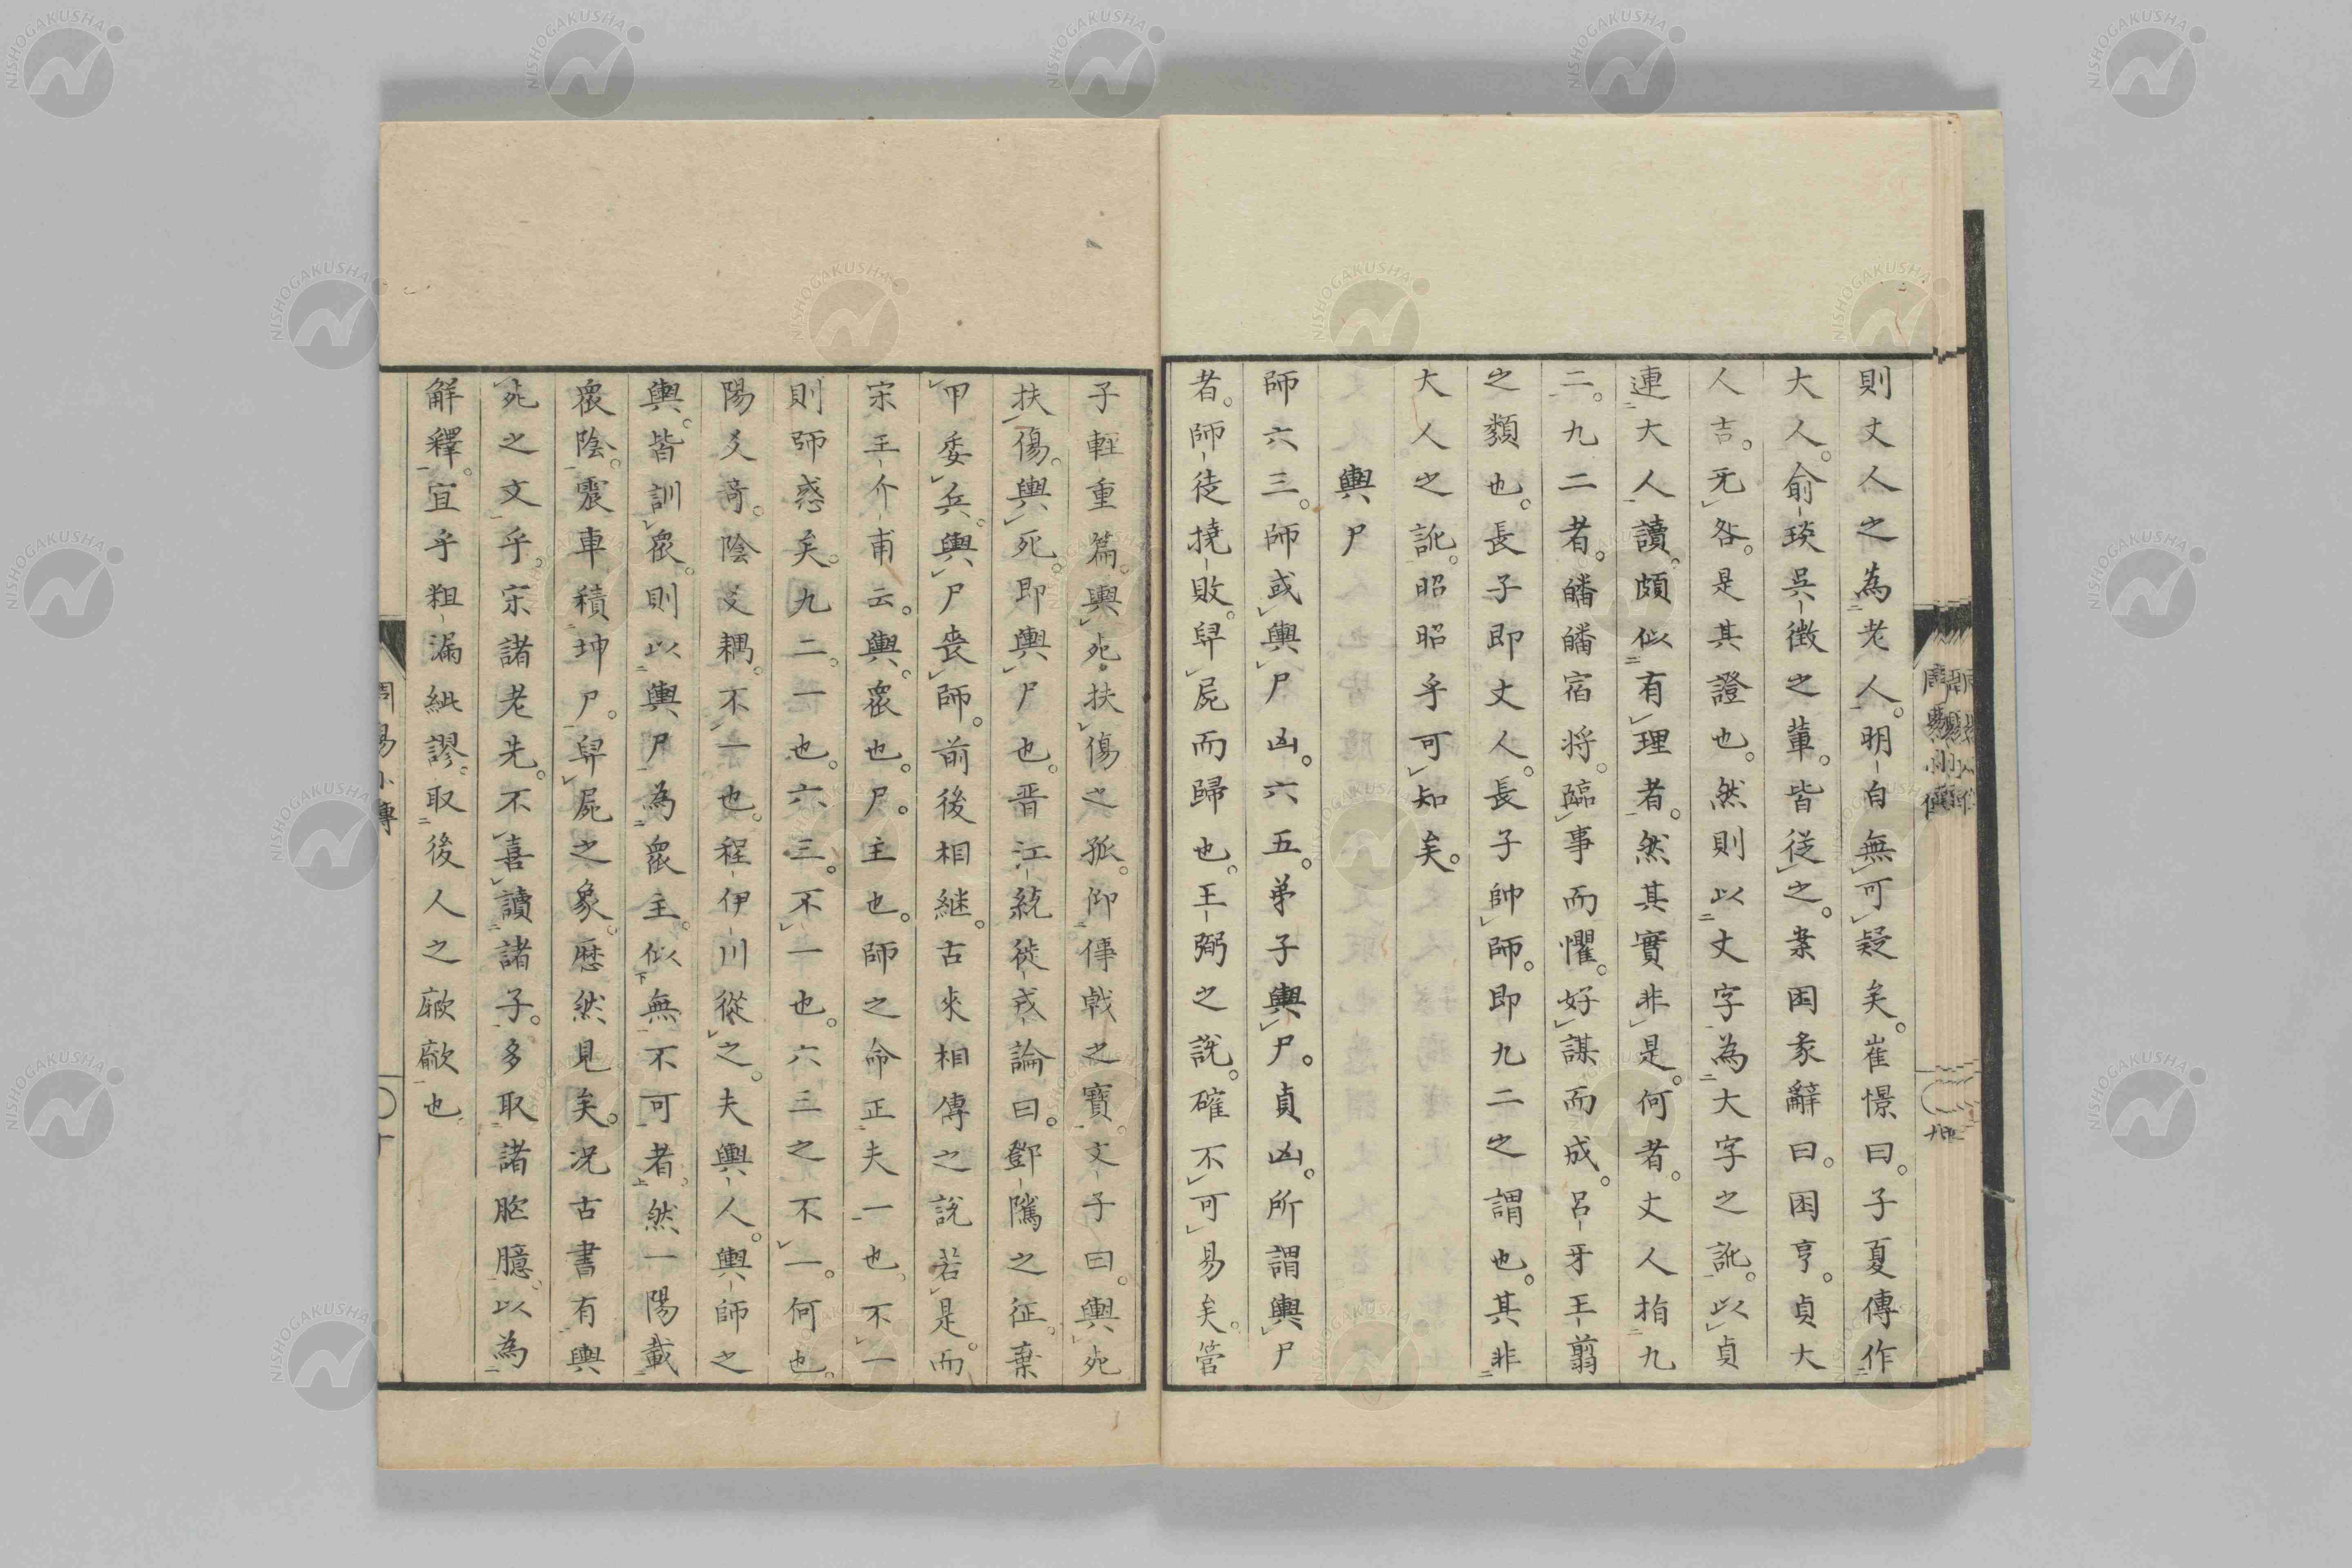 則丈人之為老人。明白無可疑矣。崔憬曰。子夏傳作
大人。俞琰吳徴之輩。皆従之。案困彖辭曰。困亨。貞大
人吉。无咎。是其證也。然則以丈字為大字之訛。以貞
連大人讀。頗似有理者。然其實非是。何者。丈人指九
二。九二者。皤皤宿将。臨事而懼。好謀而成。呂牙王翦
之類也。長子即丈人。長子帥師。即九二之謂也。其非
大人之訛。昭昭乎可知矣。
輿尸
師六三。師或輿尸凶。六五。弟子輿尸。貞凶。所謂輿尸
者。師徒撓敗。舁屍而歸也。王弼之說。確不可易矣。管
子軽重篇。輿死扶傷之孤。仰倳戟之寶。文子曰。輿死
扶傷。輿死。即輿尸也。晋江統徙戎論曰。鄧隲之征。棄
甲委兵。輿尸喪師。前後相継。古來相傳之說若是。而
宋王介甫云。輿。衆也。尸。主也。師之命正夫一也。不一
則師惑矣。九二。一也。六三。不一也。六三之不一。何也。
陽爻奇。陰爻耦。不一也。程伊川從之。夫輿人。輿師之
輿。皆訓衆。則以輿尸為衆主。似無不可者。然一陽載
衆陰。震車積坤尸。舁屍之象。歴然見矣。況古書有輿
死之文乎。宋諸老先。不喜讀諸子。多取諸胷臆。以為
解釋。宜乎粗漏紕謬。取後人之廞廞也
周易小傳